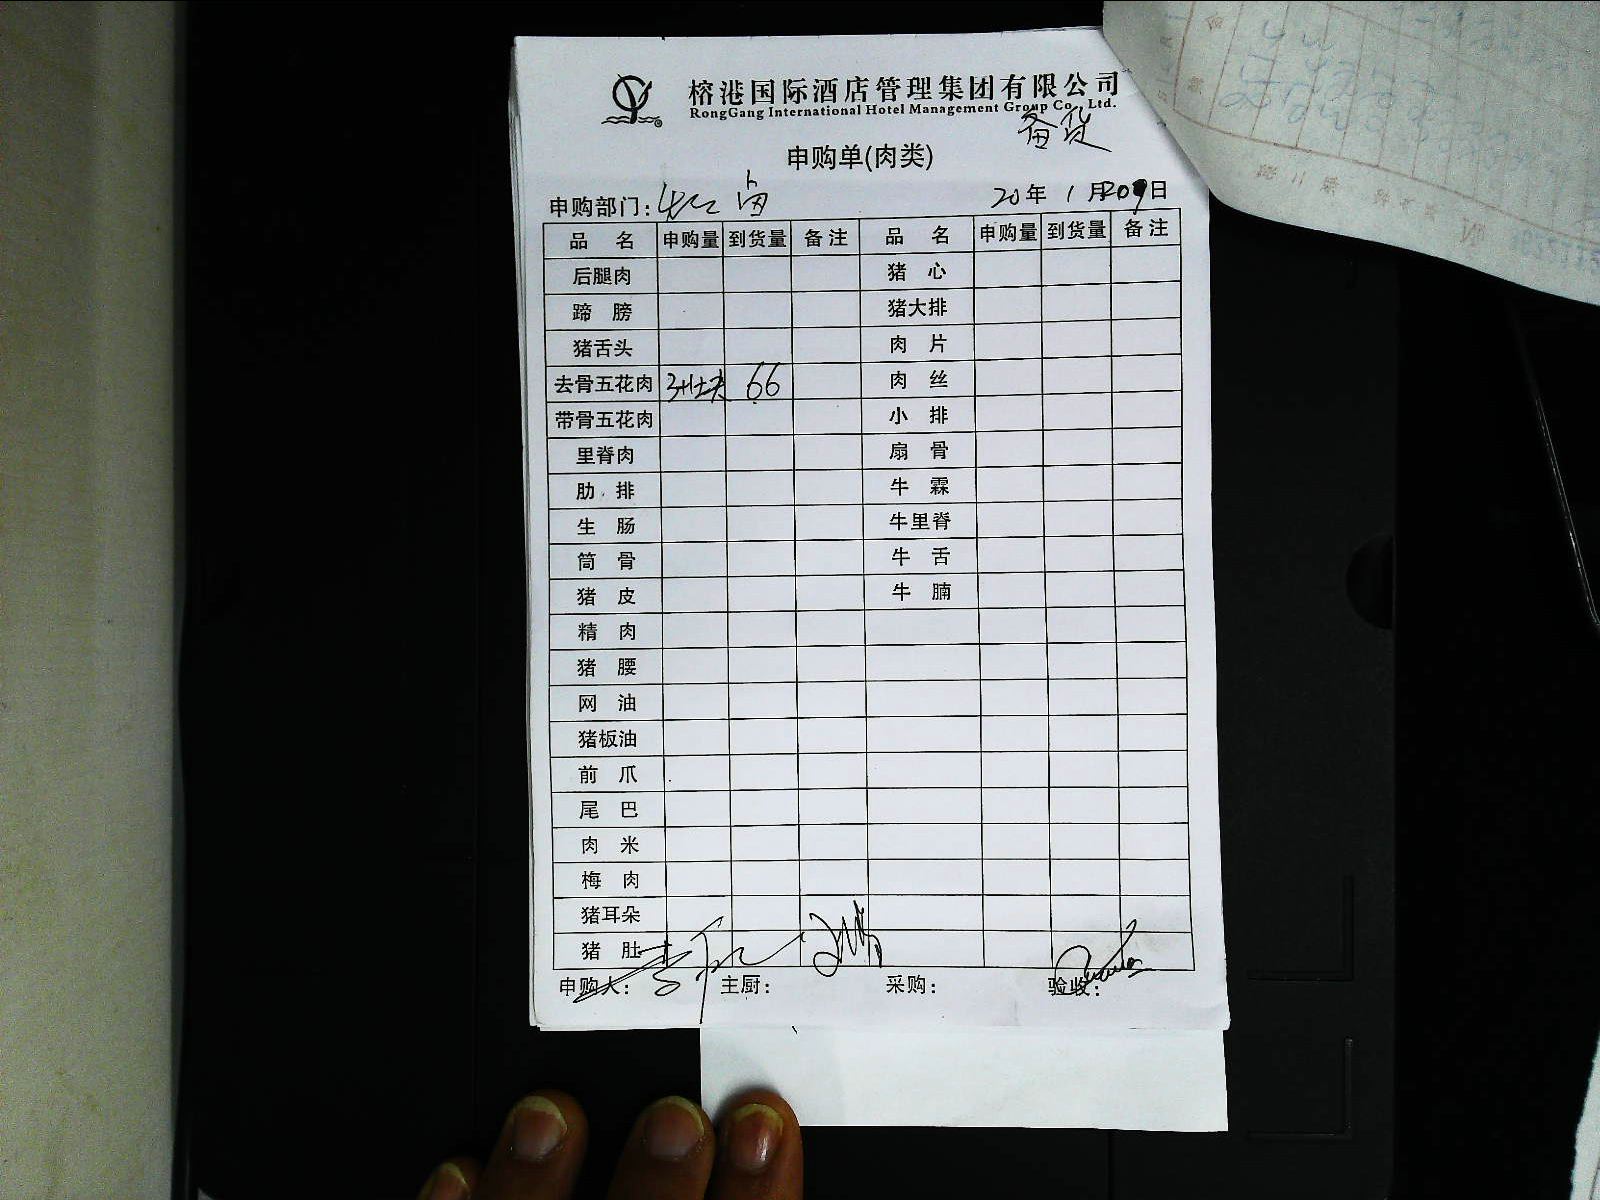 榕港国际酒店管理集团有限公司
RongGang International Hotel Management Group Co., Ltd.
备货
申购单(肉类)
申购部门: 20年 1月 09日
品 名 申购量 到货量 备注 品 名 申购量 到货量 备注
后腿肉 猪 心
蹄 膀 猪大排
猪舌头 肉 片
去骨五花肉 66 肉 丝
带骨五花肉 小 排
里脊肉 扇 骨
肋 排 牛 霖
生 肠 牛里脊
筒 骨 牛 舌
猪 皮 牛 腩
精 肉
猪 腰
网 油
猪板油
前 爪
尾 巴
肉 米
梅 肉
猪耳朵
猪 肚
申购人: 主厨: 采购: 验收: